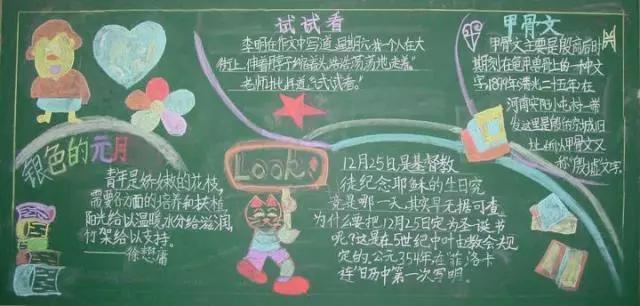 试试看
李明在作文中写道，星期六我一个人在大
街上，伸着脖子缩着头浩浩荡荡地走着。
老师批道"试试看。"
甲骨文
甲骨文主要是殷商后时
期刻在龟甲兽骨上的一种文
字,1899年清光二十五年在
河南安阳小屯村一带
发这里是殷的京城旧
址,所以甲骨文又
称殷墟文字.
银色的元月
青年是娇嫩的花枝,
需要各方面的培养和扶植
阳光给以温暖,水分给滋润,
竹架给以支持。
——徐懋庸
Look!
12月25日是基督教
徒纪念耶稣的生日究
竟是哪一天,其实早无据可查
为什么要把12月25日定为圣诞书
呢?这是在5世纪中叶由教会规
定的.公元354年在"菲洛卡
连"日历中第一次写明。